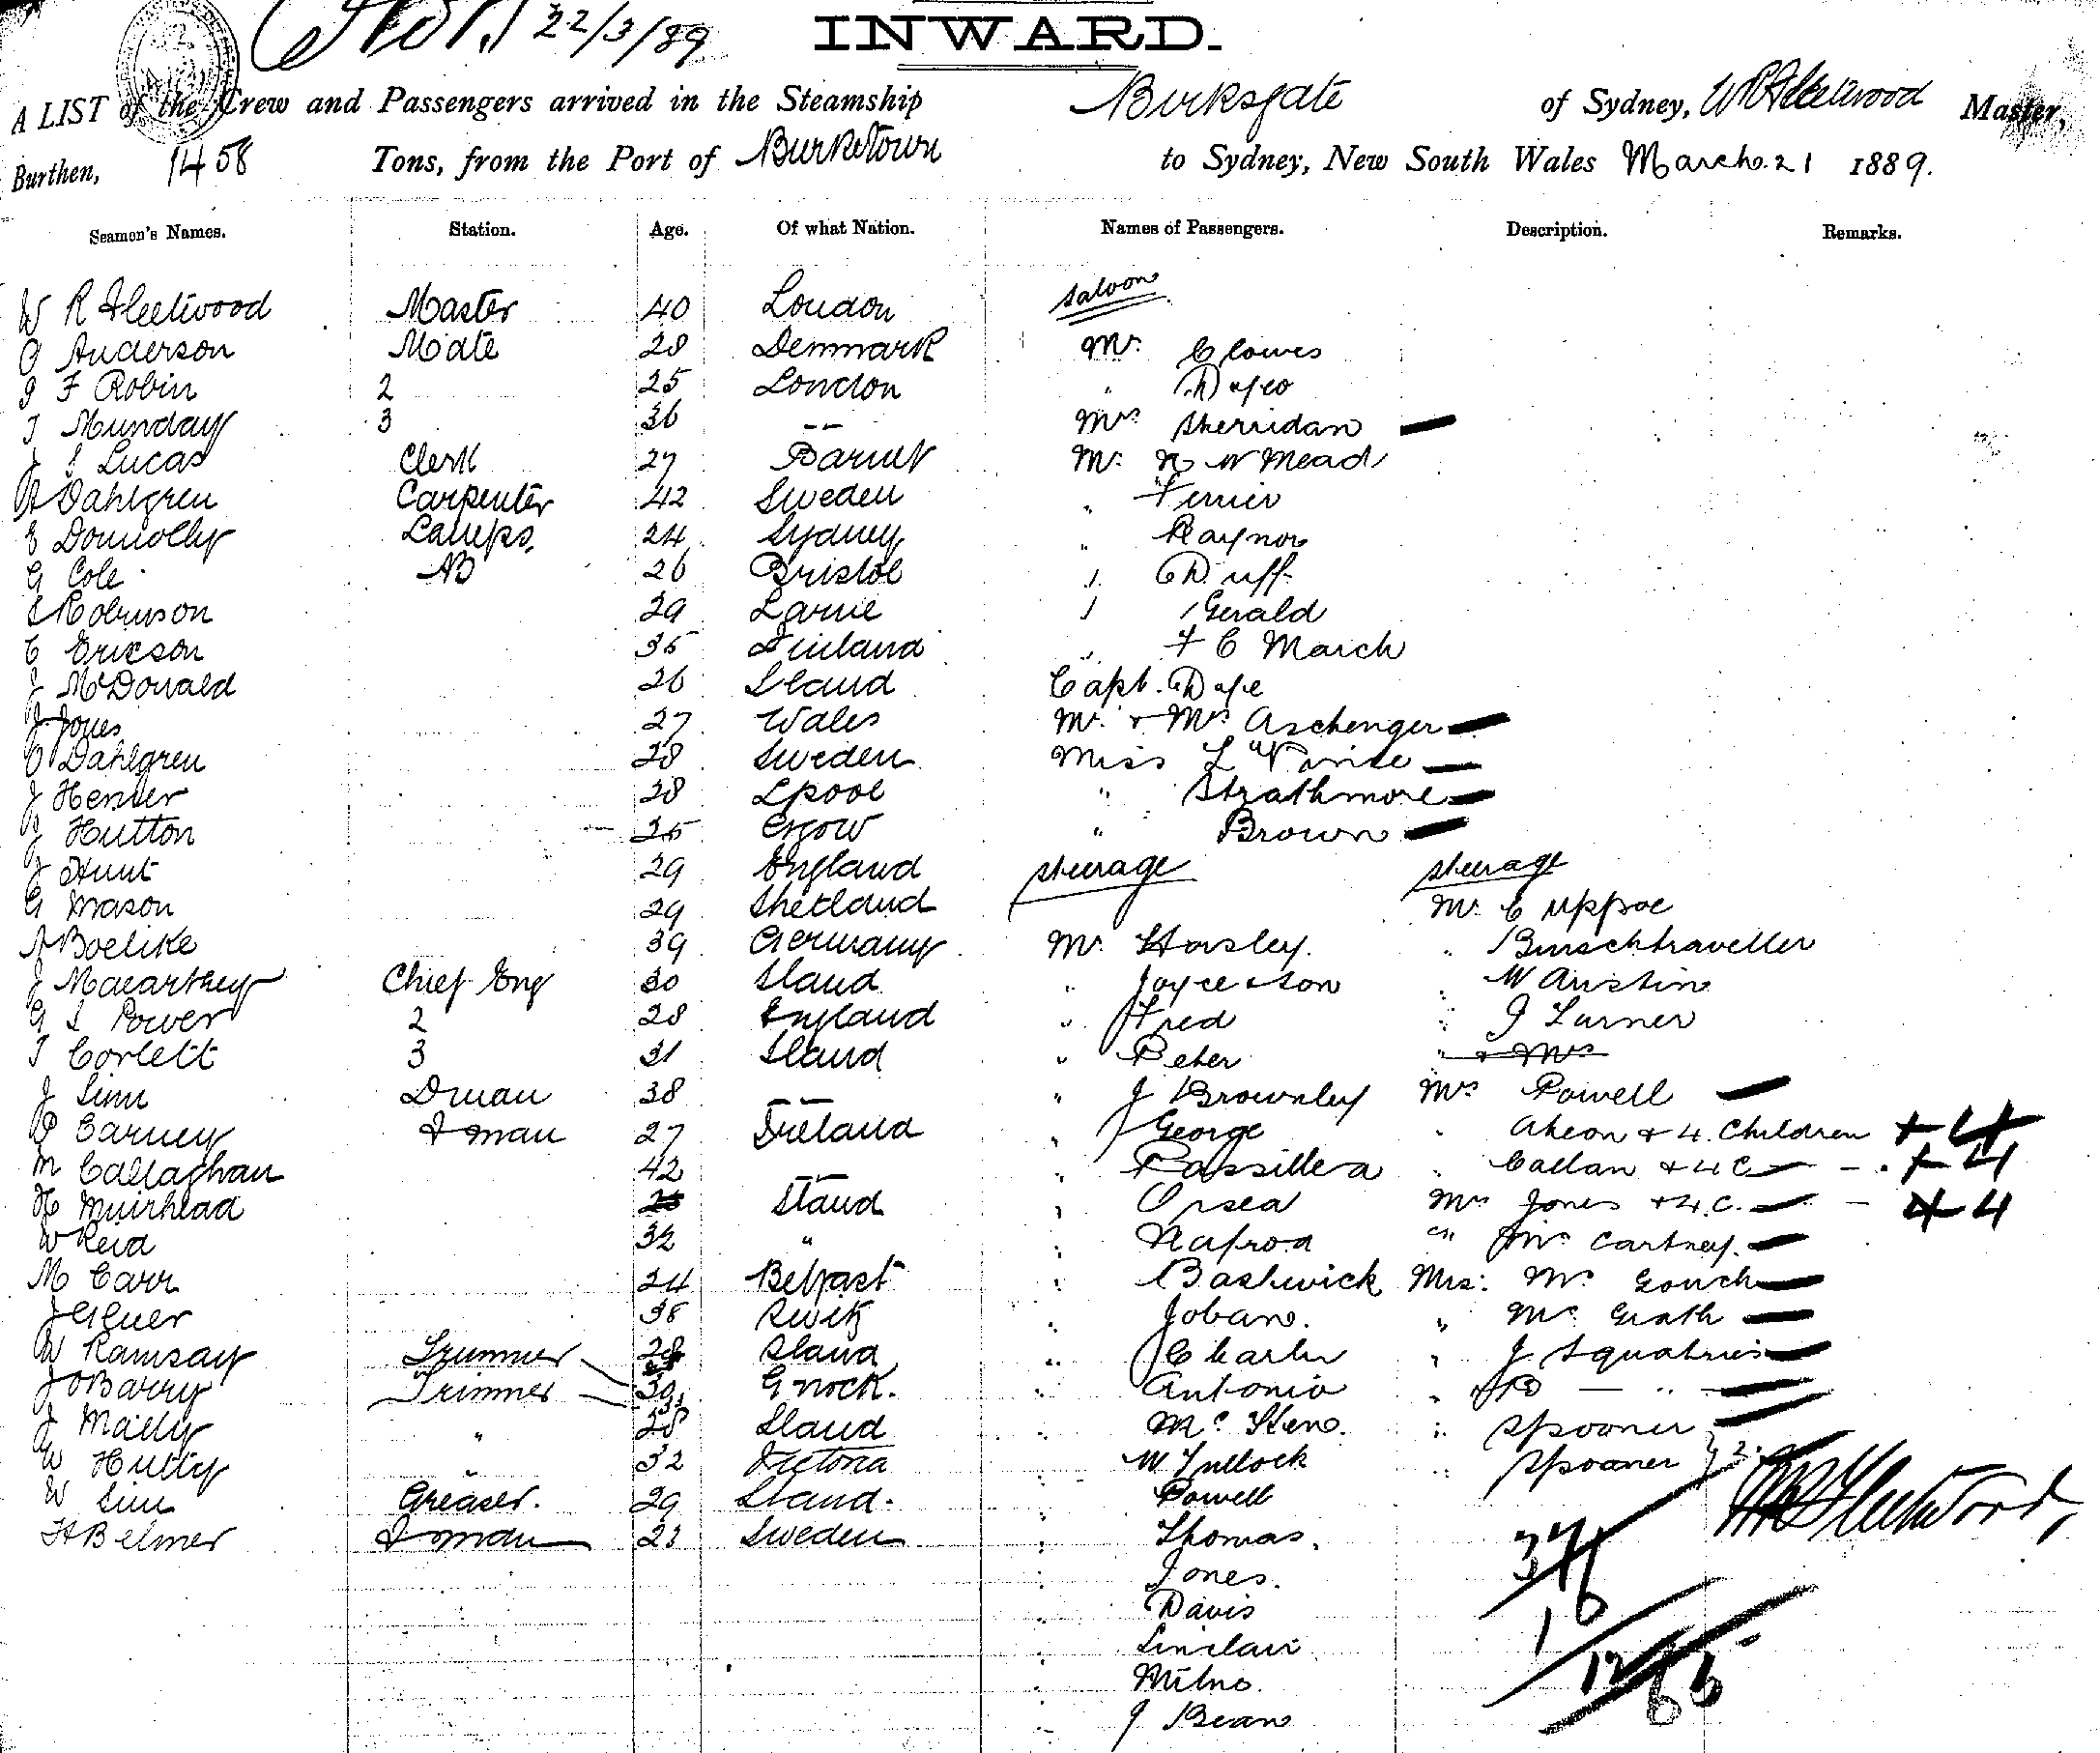 22/3/89
INWARD.
A LIST of the Crew and Passengers arrived in the Steamship Birksgate of Sydney, W R Fleetwood Master,
Burthen, 1458 Tons, from the Port of Burketown to Sydney, New South Wales March 21 1889.
Seamen's Names. Station. Age. Of what Nation. Names of Passengers. Description. Remarks.
W R Fleetwood Master 40 London Saloon
Anderson Mate 28 Denmark Mr. Clowes
F Robin 2 25 London "
T Munday 3 36 -- Mrs Sherridan
Lucas Clerk 27 Barnet Mr. W Mead
Dahlgren Carpenter 42 Sweden " Ferrier
Donnolly Lamps. 24 Sydney " Raynor
G Cole AB 26 Bristol " Duff
Robinson 29 Larne " Gerald
C Ericson 35 Finland " F C March
J McDonald 26 Sland Capt. Dape
J Jones 27 Wales Mr. & Mrs Aschenger
Dahlgren 28 Sweden Miss L
J Henser 28 Lpool " Strathmore
J Hutton 25 Glgow " Brown
J Hunt 29 England Steerage Steerage
G Mason 29 Shetland Mr. C Uppoe
Boelike 39 Germany Mr. Horsley. " Burschtraveller
J Macarthey Chief Eng 30 Sland " Joyce & Son " W Austin
G Power 2 28 England " Fred " J Turner
T Corlett 3 31 Sland " Peter " & Mrs
J Sim Dman 38 -- " J Brownley Mrs Powell
P Carney Fman 27 Ireland " George " Aheon & 4 Children + 4
M Callaghan 42 -- " Passillea " Callan & 4 C + 4
H Muirhead Sland " Orsea Mrs Jones & 4 C. + 4
W Reid 32 " " Nafroa " Mc Cartney.
M Carr 24 Belfast " Bashwick Mrs: Mc Gouch
38 Switz " Jobano. " Mc Grath
W Ramsay Trimmer 28 Sland " Charles " J Squatries
J OBarry Trimmer 30 Gnock. " Antonio " — " —
J Mally " 28 Sland " Mc Steno. " Spooner
W Hutty " 32 Victoria " W Tullock " Spooner
W Sim Greaser. 29 Sland. " Powell W R Fleetwood
H Belmer Fman 23 Sweden " Thomas.
" Jones.
" Davis
" Sinclair
" Milne.
" J Bean